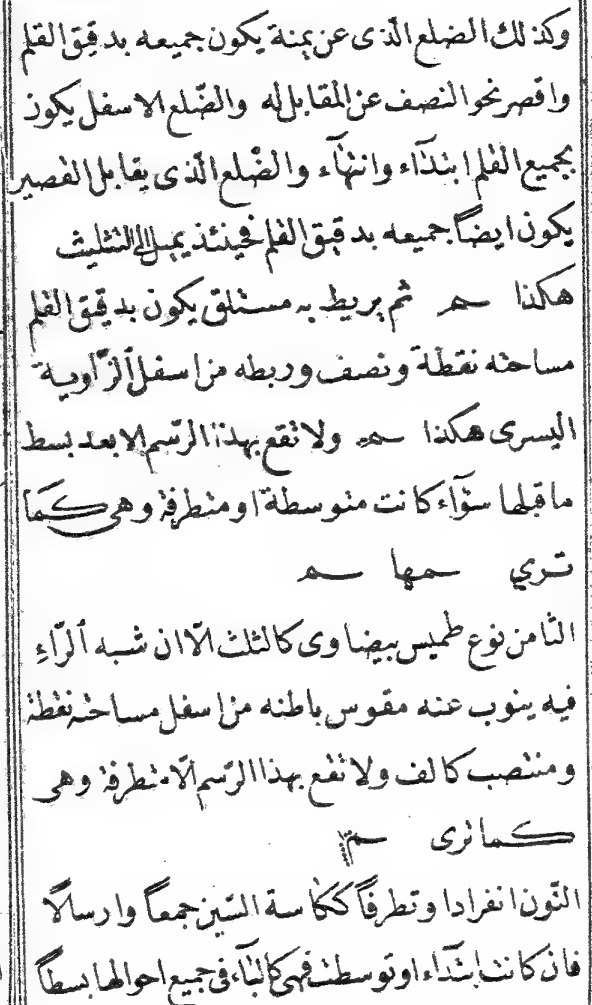 وكذلك الضلع الذى عن يمنة يكون جميعه بدقيق القلم
واقصر نحو النصف عن المقابل له والضّلع الاسفل يكون
بجميع القلم ابتدآء وانتهآء والضّلع الذى يقابل القصير
يكون ايضاً جميعه بدقيق القلم فحينئذ يميل الى التثليث
هكذا ثم يربط به مستلق يكون بدقيق القلم
مساحته نقطة ونصف وربطه من اسفل الزّاوية
اليسرى هكذا ولا تقع بهذا الرّسم الا بعد بسط
ما قبلها سوآء كانت متوسطة او متطرفة وهى كما
ترى
الثامن نوع طميس بيضاوى كالثلث الّا ان شبه الرّاءِ
فيه ينوب عنه مقوس باطنه من اسفل مساحته نقطة
ومنتصب كالف ولا تقع بهذا الرّسم الّا متطرفة وهى
كما ترى
النّون انفرادا وتطرفاً ككاسة السّين جمعاً وارسالًا
فان كانت ابتدآء او توسطت فهى كالبآء فى جميع احوالها بسطاً